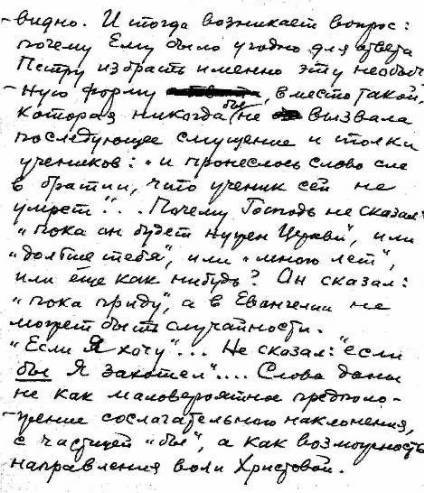 -видно. И тогда возникает вопрос:
почему Ему было угодно для ответа
Петру избрать именно эту необыч
-ную форму, вместо такой,
которая никогда бы не вызвала
последующее смущение и толки
учеников: „и пронеслось слово сие
в братии, что ученик сей не
умрет"... Почему Господь не сказал:
„пока он будет нужен Церкви", или
„дольше тебя", или „много лет",
или еще как нибудь? Он сказал:
„пока приду", а в Евангелии не
может быть случайности.
„Если Я хочу"... Не сказал: "если
бы Я захотел".... Слова даны
не как маловероятное предполо-
-жение сослагательного наклонения,
с частицей „бы", а как возможность
направления воли Христовой.